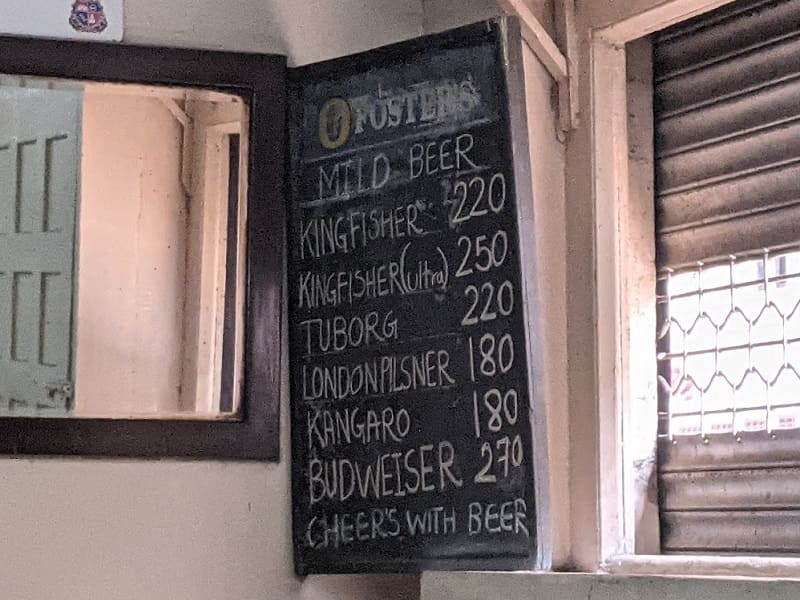 FOSTER'S
MILD BEER
KINGFISHER 220
KINGFISHER(ultra) 250
TUBORG 220
LONDON PILSNER 180
KANGARO 180
BUDWEISER 270
CHEER'S WITH BEER